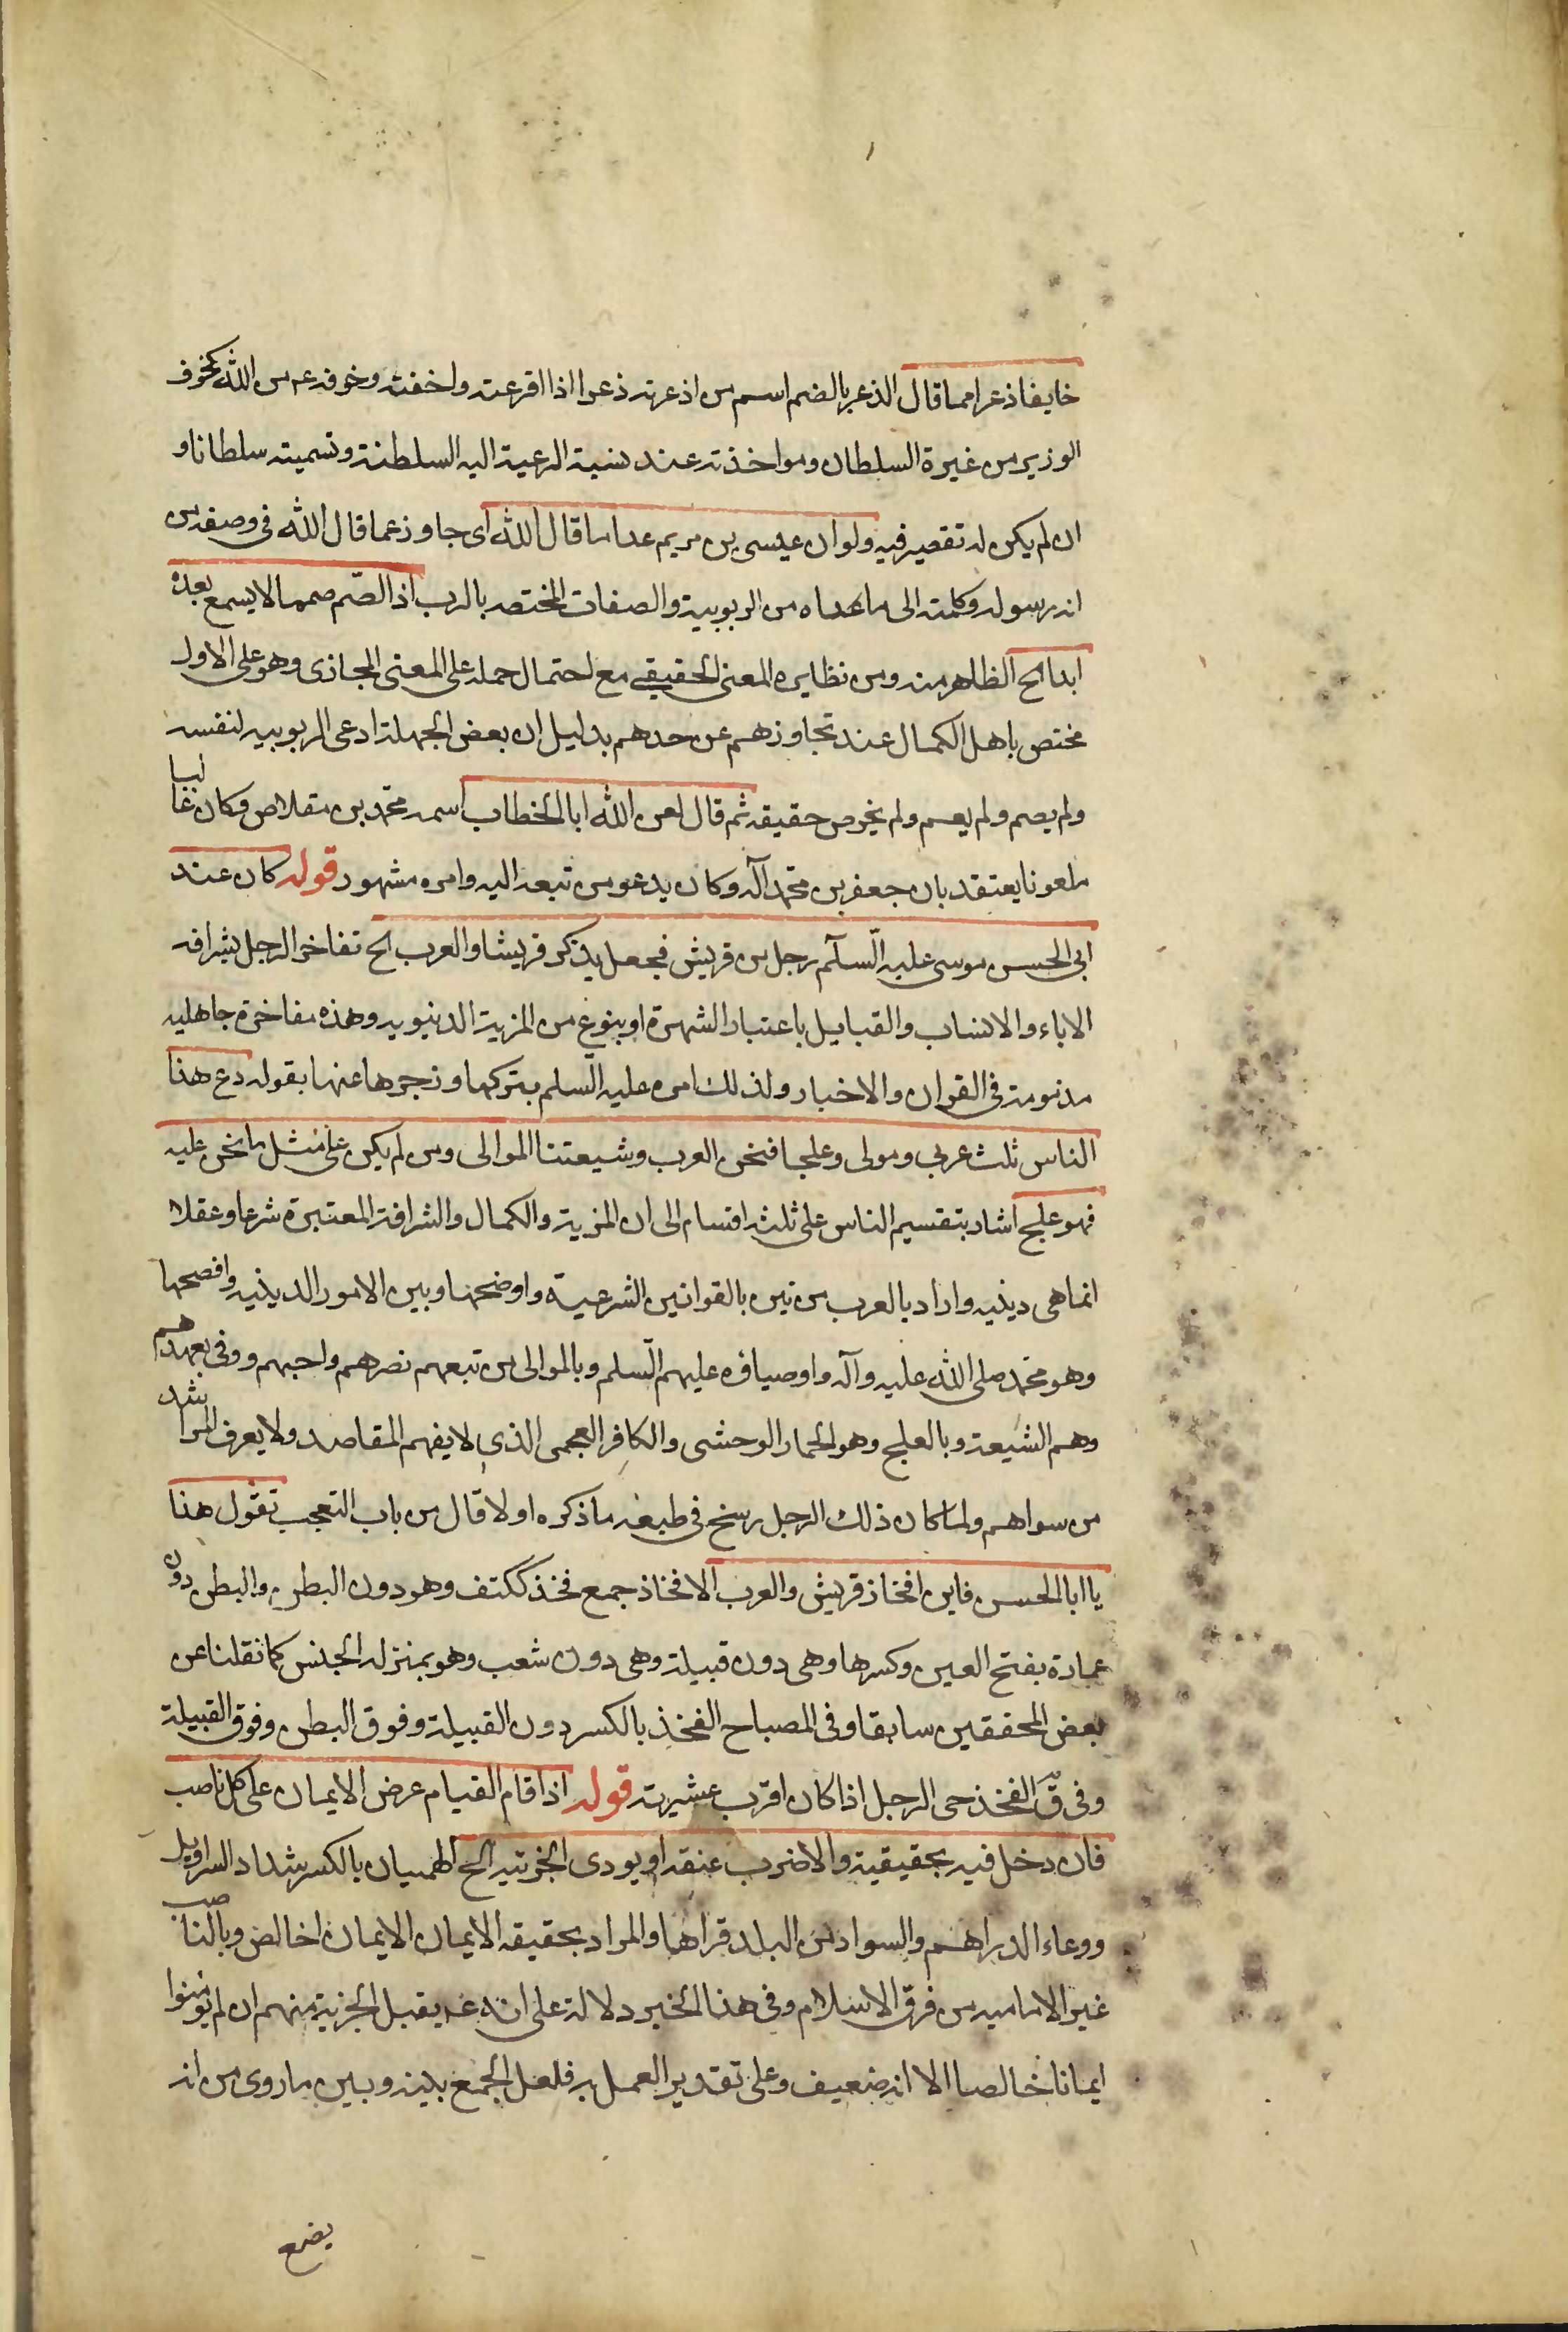 خايفا ذعرا مما قال الذعر بالضم اسم من اذعرته ذعرا اذا افزعته واخفته وخوفه عم من الله كخوف
الوزير من غيرة السلطان ومواخذته عند نسبة الرعية اليه السلطنة وتسميته سلطانا و
ان لم يكن له تقصير فيه ولو ان عيسى بن مريم عدا ما قال الله اى جاوز عما قال الله فى وصفه من
انه رسوله وكلمته الى ما عداه من الربوبية والصفات المختصه بالرب اذا لصّم صمما لا يسمع بعده
ابدا الخ الظاهر منه ومن نظايره المعنى الحقيقى مع احتمال حمله على المعنى المجازى وهو على الاول
مختص باهل الكمال عند تجاوزهم عن حدهم بدليل ان بعض الجهلة ادعى الربوبيه لنفسه
ولم يصم ولم يعم ولم يخرص حقيقه ثم قال لعن الله ابا الخطاب اسمه محمّد بن مقلاص وكان غاليا
ملعونا يعتقد بان جعفر بن محمّد آله وكان يدعو من تبعه اليه وامره مشهور قوله كان عند
ابى الحسن موسى عليه السّلآم رجل من قريش فجعل يذكر قريشا والعرب الخ تفاخر الرجل بشرافه
الاباء والانساب والقبايل باعتبار الشهرة او بنوع من المزية الدنيويه وهذه مفاخرة جاهليه
مذمومة فى القران والاخبار ولذلك امره عليه السّلم بتركها وزجرها عنها بقوله دع هذا
الناس ثلث عربى ومولى وعلجا فنحن العرب وشيعتنا الموالى ومن لم يكن على مثل ما نحن عليه
فهو علج اشار بتقسيم الناس على ثلثه اقسام الى ان المزية والكمال والشرافة المعتبرة شرعا وعقلا
انما هى دينيه واراد بالعرب من تبين بالقوانين الشرعية واوضحها وبين الامور الدينيه وافصحها
وهو محمّد صلى الله عليه وآله واوصياؤه عليهم السّلم وبالموالى من تبعهم نصرهم واحبهم ووفى بعهدهم
وهم الشيعة وبالعلج وهو الحمار الوحشى والكافر العجمى الذى لا يفهم المقاصد ولا يعرف المراشد
من سواهم ولما كان ذلك الرجل رسخ فى طبعه ما ذكره اولا قال من باب التعجب تقول هذا
يا ابا الحسن فاين افخاذ قريش والعرب الافخاذ جمع فخذ ككتف وهو دون البطن والبطن دون
عمارة بفتح العين وكسرها وهى دون قبيلة وهى دون شعب وهو بمنزلة الجنس كما نقلنا عن
بعض المحققين سابقا وفى المصباح الفخذ بالكسر دون القبيلة وفوق البطن وفوق القبيلة
وفى ق الفخذ حى الرجل اذا كان اقرب عشيرته قوله اذا قام القيام عرض الايمان على كل ناصب
فان دخل فيه بحقيقية والا ضرب عنقه او يودى الجزيه الخ الهميان بالكسر شداد السراويل
ووعاء الدراهم والسواد من البلد قراها والمراد بحقيقه الايمان الايمان اخالص وبالناصب
غير الاماميه من فرق الاسلام وفى هذا الخبر دلالة على انه عم يقبل الجزية منهم ان لم يومنوا
ايمانا خالصا الا انه ضعيف وعلى تقدير العمل به فلعل الجمع بينه وبين ما روى من انه
يضع